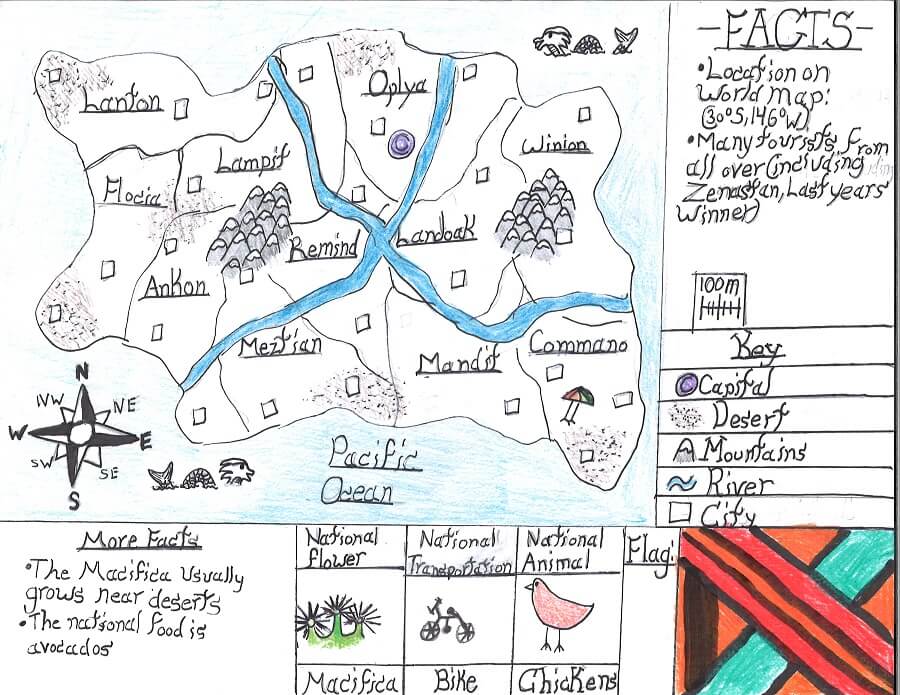 -FACTS-
•Location on
World map:
(30°S, 146°W)
•Many tourists from
all over (including
Zenastan, Last years
winner)
100m
Key
Capital
Desert
Mountains
River
City
Lanton
Oplya
Winion
Lampit
Flocia
Remind
Landoak
Ankon
Meztian
Mandit
Commano
N
NW
NE
W
E
SW
SE
S
Pacific
Ocean
More Facts
•The Macifica usually
grows near deserts
•The national food is
avocados
National
flower
Macifica
National
Transportation
Bike
National
Animal
Chickens
Flag: